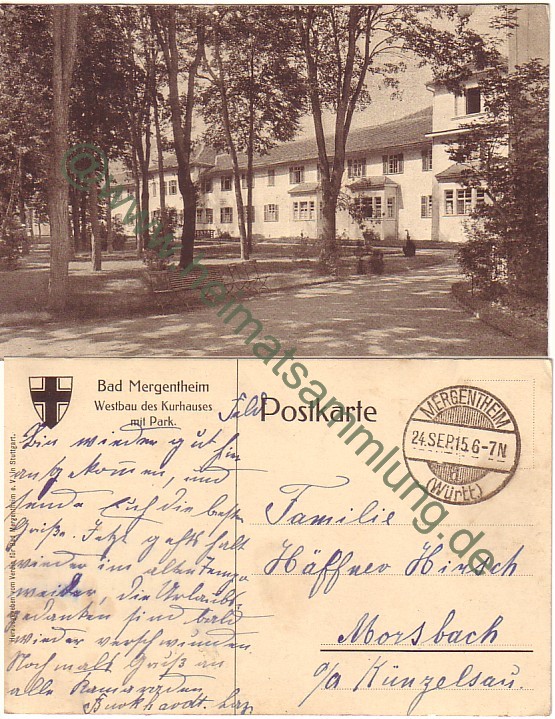 © www.heimatsammlung.de
Bad Mergentheim
Westbau des Kurhauses
mit Park.
Feld Postkarte
MERGENTHEIM
24.SEP.15.6-7N
(Württ)
Bin wieder gut hier
angekommen, und
sende Euch die besten
Grüße. Jetzt gehts halt
wieder im alten Tempo
weiter, die Urlaubs-
gedanken sind bald
wieder verschwunden.
Nochmals Grüß an
alle Kameraden
Burkhardt
Familie
Häffner Hirsch
Morsbach
o/a Künzelsau.
Herausgegeben vom Verein für Bad Mergentheim e. V. in Stuttgart.